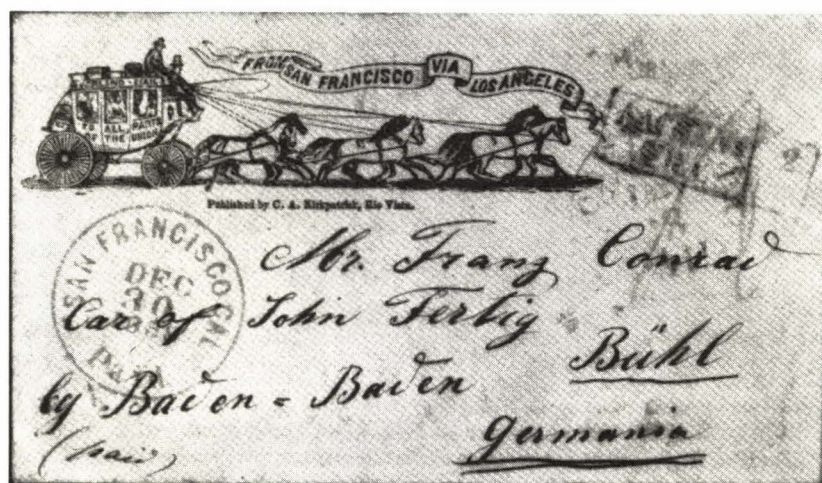 FROM SAN FRANCISCO VIA LOS ANGELES
OVERLAND MAIL
TO ALL PARTS
OF THE UNION
Published by C. A. Kirkpatrick, Rio Vista.
SAN FRANCISCO CAL
DEC
30
PAID
27
Mr. Franz Conrad
Car of John Fertig
Bühl
by Baden = Baden
Germania
(paid)